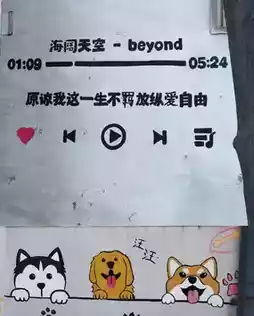 海阔天空 - beyond
01:09 05:24
原谅我这一生不羁放纵爱自由
汪汪